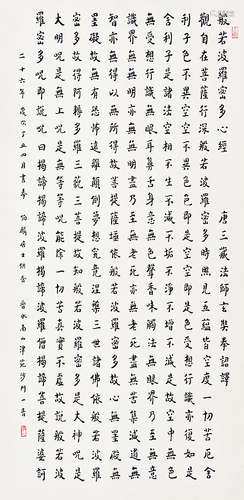 般若波羅蜜多心經 唐三藏法師玄奘奉詔譯
觀自在菩薩行深般若波羅蜜多時照見五蘊皆空度一切苦厄舍
利子色不異空空不異色色即是空空即是色受想行識亦復如是
舍利子是諸法空相不生不滅不垢不淨不增不減是故空中無色
無受想行識無眼耳鼻舌身意無色聲香味觸法無眼界乃至無意
識界無無明亦無無明盡乃至無老死亦無老死盡無苦集滅道無
智亦無得以無所得故菩提薩埵依般若波羅蜜多故心無罣礙無
罣礙故無有恐怖遠離顛倒夢想究竟涅槃三世諸佛依般若波羅
蜜多故得阿耨多羅三藐三菩提故知般若波羅蜜多是大神呪是
大明呪是無上呪是無等等呪能除一切苦真實不虛故說般若波
羅蜜多呪即說呪曰揭諦揭諦波羅揭諦波羅僧揭諦菩提薩婆訶
二十六年歲次丁丑四月書奉 居士供養 沙門一音